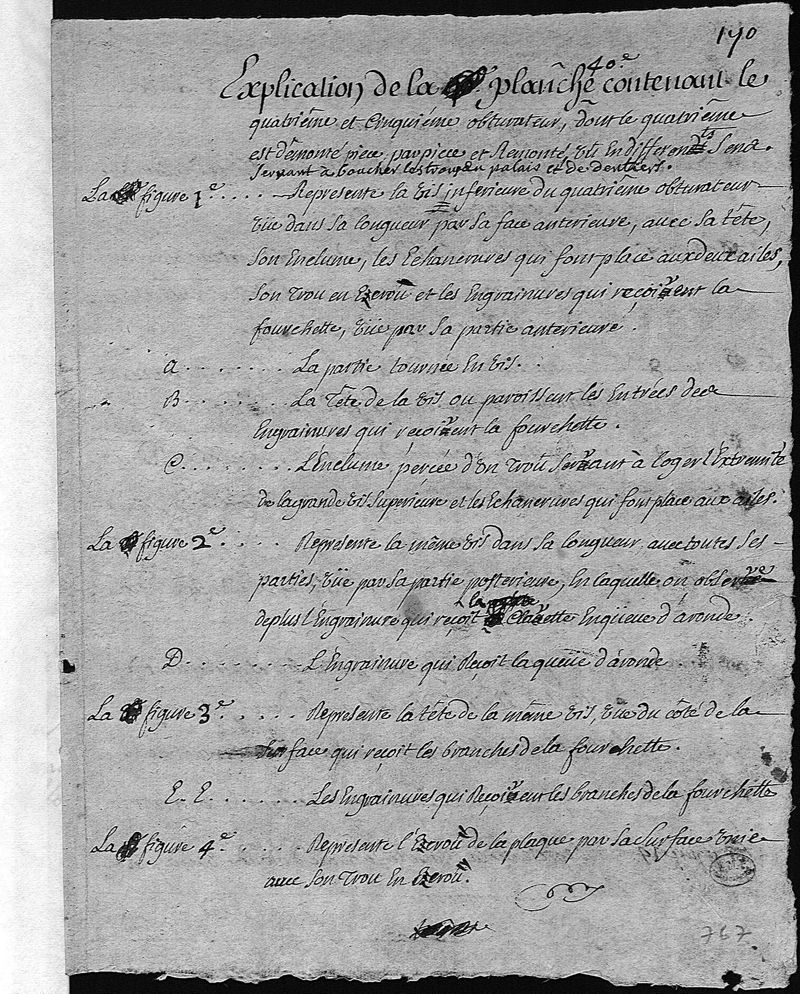 190
Explication de la planche 40.e contenant le
quatriême et cinquiême obturateur, dont le quatriême
est démonté piece par piece et Remonté vû en differents Sens.
servant à boucher les trous du palais et de dentiers.
La figure 1e. . . . . . Represente la vis inferieure du quatriême obturateur
vüe dans sa longueur par sa face anterieure, avec sa tête,
son Enclume, les Echancrures qui font place aux deux ailes,
son trou en Ecrou et les Engrainures qui reçoivent la
fourchette, vüe par sa partie anterieure.
A . . . . . . . La partie tournée en vis.
B . . . . . . . La tête de la vis ou paroissent les Entrées des
Engrainures qui reçoivent la fourchette.
C . . . . . . . L'Enclume percée d'un trou servant à loger l'Extremité
de la grande vis superieure et les Echancrures qui font place aux ailes.
La figure 2e. . . . . Represente la même vis dans sa longueur avec toutes ses
parties, vüe par sa partie posterieure, en laquelle on observe
de plus l'Engrainure qui reçoit la Clavette en queüe d'aronde.
D . . . . . . . L'Engrainure qui Reçoit la queüe d'aronde
La figure 3e. . . . . . Represente la tête de la même vis, vüe du côté de la
surface qui reçoit les branches de la fourchette.
E. E. . . . . . . Les Engrainures qui Reçoivent les branches de la fourchette
La figure 4e . . . . Represente l'Ecrou de la plaque par sa surface unie
avec son trou en Ecrou.
767